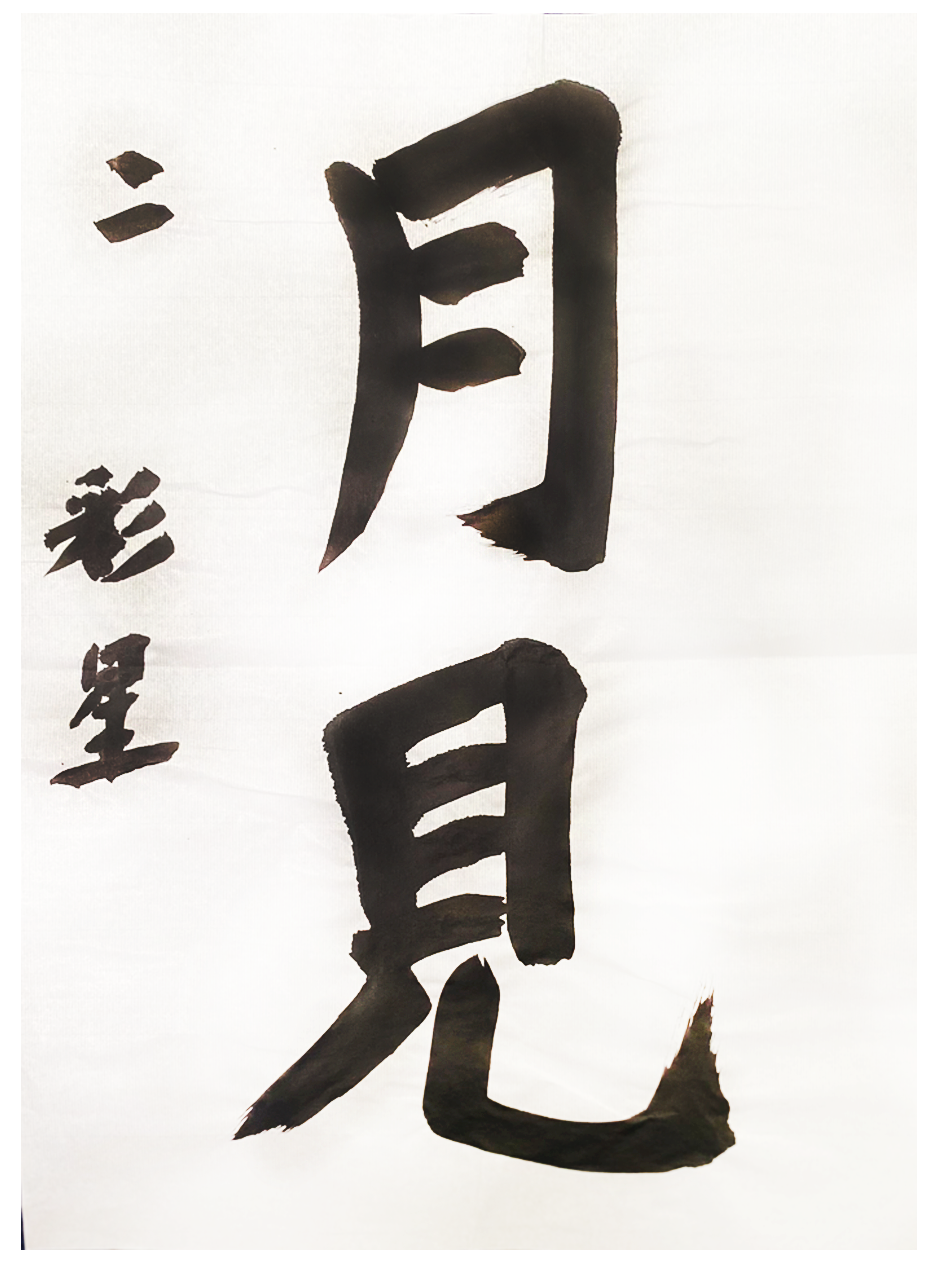 月見
二 彩星